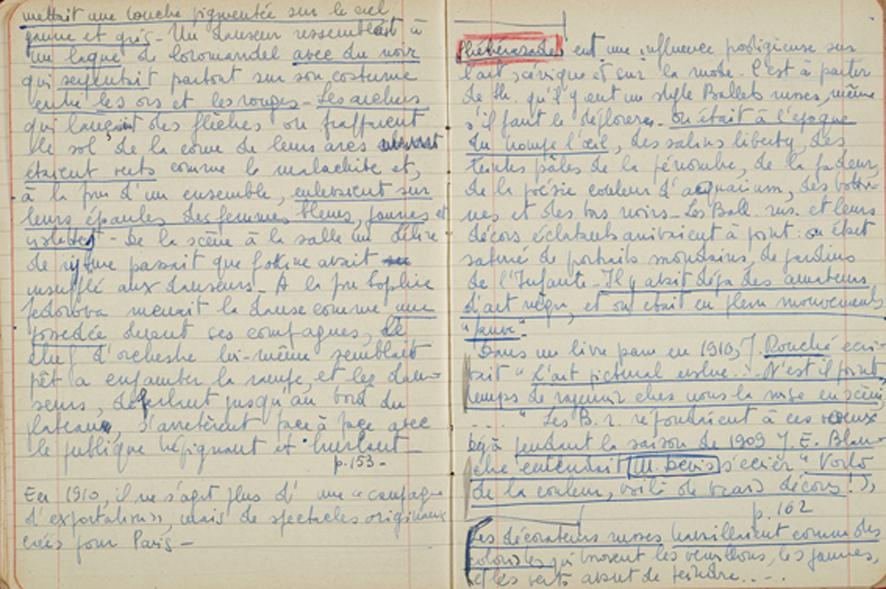 mettait une couche pigmentée sur le ciel
jaune et gris - Un danseur ressemblait à
un laque de Coromandel avec du noir
qui serpentait partout sur son costume
entre les ors et les rouges - Les archers
qui lançaient des flèches ou frappaient
le sol de la corne de leurs arcs
étaient verts comme le malachite et,
à la fin d'un ensemble, enlevaient sur
leurs épaules des femmes bleues, jaunes et
violettes - De la scène à la salle un délire
de rythme passait que Fokine avait
insufflé aux danseurs - A la fin Sophie
Fedorova menait la danse comme une
possédée devant ses compagnes, le
chef d'orchestre lui-même semblait
prêt a enjamber la rampe, et les dan-
seurs, déferlant jusqu'au bord du
plateau, s'arrêtèrent face à face avec
le publique trépignant et hurlant -
p.153 -
En 1910, il ne s'agit plus d'une "campagne
d'exportation", mais de spectacles originaux
créés pour Paris -
Shéhérazade eut une influence prodigieuse sur
l'art scénique et sur la mode. C'est à partir
de Sh. qu'il y eut un style Ballets russes, même
s'il faut le déplorer - on était à l'époque
du trompe l'œil, des satins liberty, des
teintes pâles de la pénombre, de la fadeur,
de la poésie couleur d'aquarium, des botti-
nes et des bas noirs - Les Ball. rus. et leurs
décors éclatants arrivaient à point. on était
saturé de portraits mondains, de jardins
de l'Infante - Il y avait déjà des amateurs
d'art nègre, et on était en plein mouvement
"fauve" -
Dans un livre paru en 1910, J. Rouché écri-
vait "L'art pictural évolue... N'est-il point
temps de rajeunir chez nous la mise en scène
... " Les B. r. répondaient à ces vœux
Déjà pendant la saison de 1909 J. E. Blan-
che entendait M. Denis s'écrier "Voilà
de la couleur, voilà de vrais décors!"
p.162
Les décorateurs russes travaillent comme des
coloristes qui broient les vermillons, les jaunes,
et les verts avant de peindre....